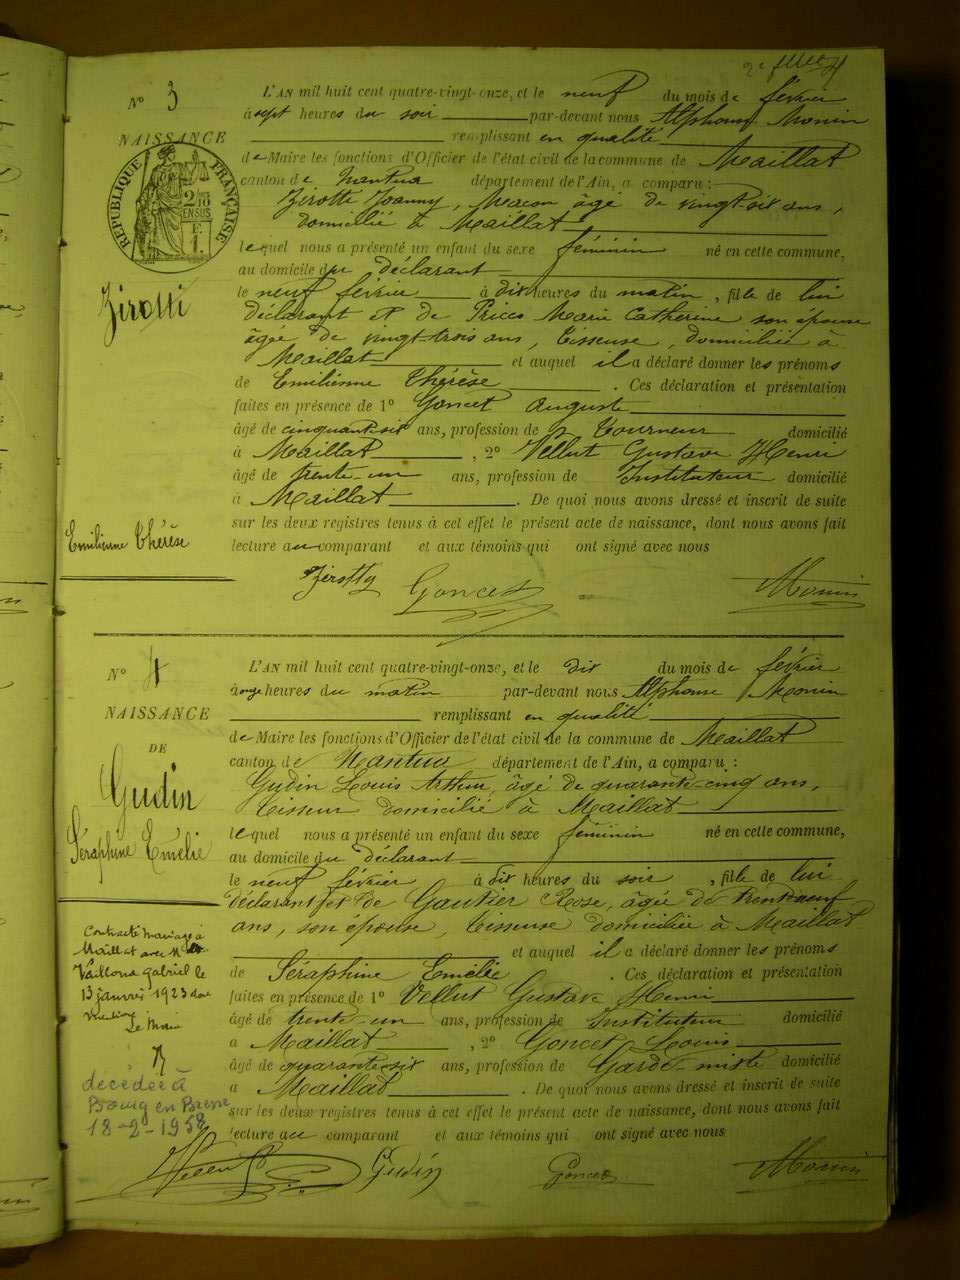 2e feuillet
N° 3
NAISSANCE
RÉPUBLIQUE FRANÇAISE
2/10 EN SUS
Zirotti
Emilienne Thérèse
L'AN mil huit cent quatre-vingt-onze, et le neuf du mois de février
à sept heures du soir par-devant nous Alphonse Monin
remplissant en qualité
de Maire les fonctions d'Officier de l'état civil de la commune de Maillat
canton de Nantua département de l'Ain, a comparu :
Zirotti Joanny, Maçon âgé de vingt six ans,
domicilié à Maillat
lequel nous a présenté un enfant du sexe féminin né en cette commune,
au domicile du déclarant
le neuf février à dix heures du matin, fille de lui
déclarant et de Pricos Marie Catherine son épouse
âgée de vingt-trois ans, Tisseuse, domiciliée à
Maillat et auquel il a déclaré donner les prénoms
de Emilienne Thérèse. Ces déclaration et présentation
faites en présence de 1° Goncet Auguste
âgé de cinquante six ans, profession de Tourneur domicilié
à Maillat, 2° Vellut Gustave Henri
âgé de trente-un ans, profession de Instituteur domicilié
à Maillat. De quoi nous avons dressé et inscrit de suite
sur les deux registres tenus à cet effet le présent acte de naissance, dont nous avons fait
lecture au comparant et aux témoins qui ont signé avec nous
Zirotty Goncet Monin
N° 4
NAISSANCE
DE
Gudin
Séraphine Emélie
Contracté mariage à
Maillat avec Mr
Vailloud gabriel le
13 janvier 1923 dont
mention
Le Maire
décédée à
Bourg en Bresse
18-2-1958
L'AN mil huit cent quatre-vingt-onze, et le dix du mois de février
à onze heures du matin par-devant nous Alphonse Monin
remplissant en qualité
de Maire les fonctions d'Officier de l'état civil de la commune de Maillat
canton de Nantua département de l'Ain, a comparu :
Gudin Louis Arthur, âgé de quarante-cinq ans,
Tisseur domicilié à Maillat
lequel nous a présenté un enfant du sexe féminin né en cette commune,
au domicile du déclarant
le neuf février à dix heures du soir, fille de lui
déclarant et de Gautier Rose, âgée de trente neuf
ans, son épouse, Tisseuse domiciliée à Maillat
et auquel il a déclaré donner les prénoms
de Séraphine Emélie. Ces déclaration et présentation
faites en présence de 1° Vellut Gustave Henri
âgé de trente-un ans, profession de Instituteur domicilié
à Maillat, 2° Goncet Louis
âgé de quarante-six ans, profession de Garde-mixte domicilié
a Maillat. De quoi nous avons dressé et inscrit de suite
sur les deux registres tenus à cet effet le présent acte de naissance, dont nous avons fait
lecture au comparant et aux témoins qui ont signé avec nous
Vellut Gudin Goncet Monin